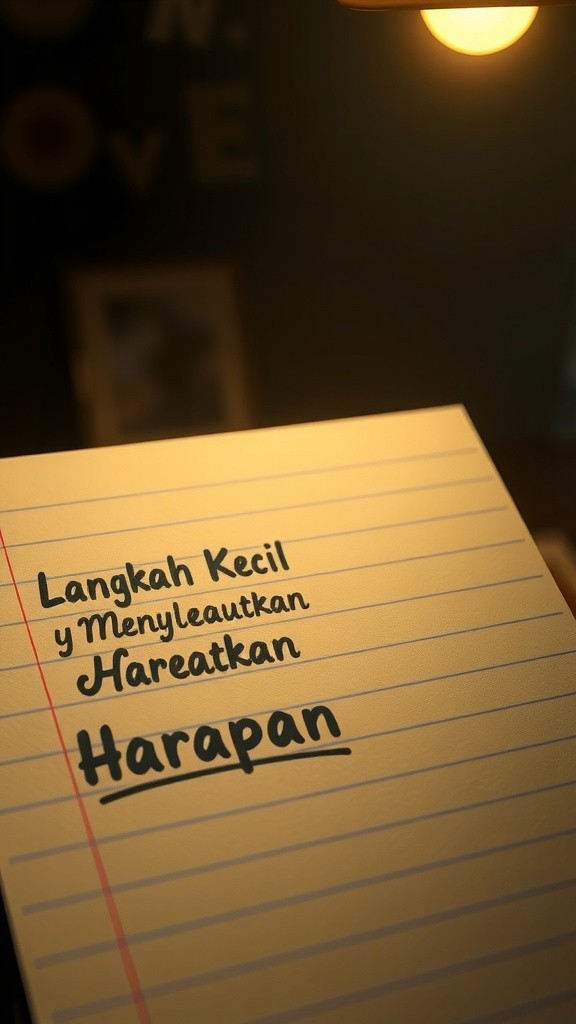 N.
OVE
Langkah Kecil
y Menyleautkan
Hareatkan
Harapan